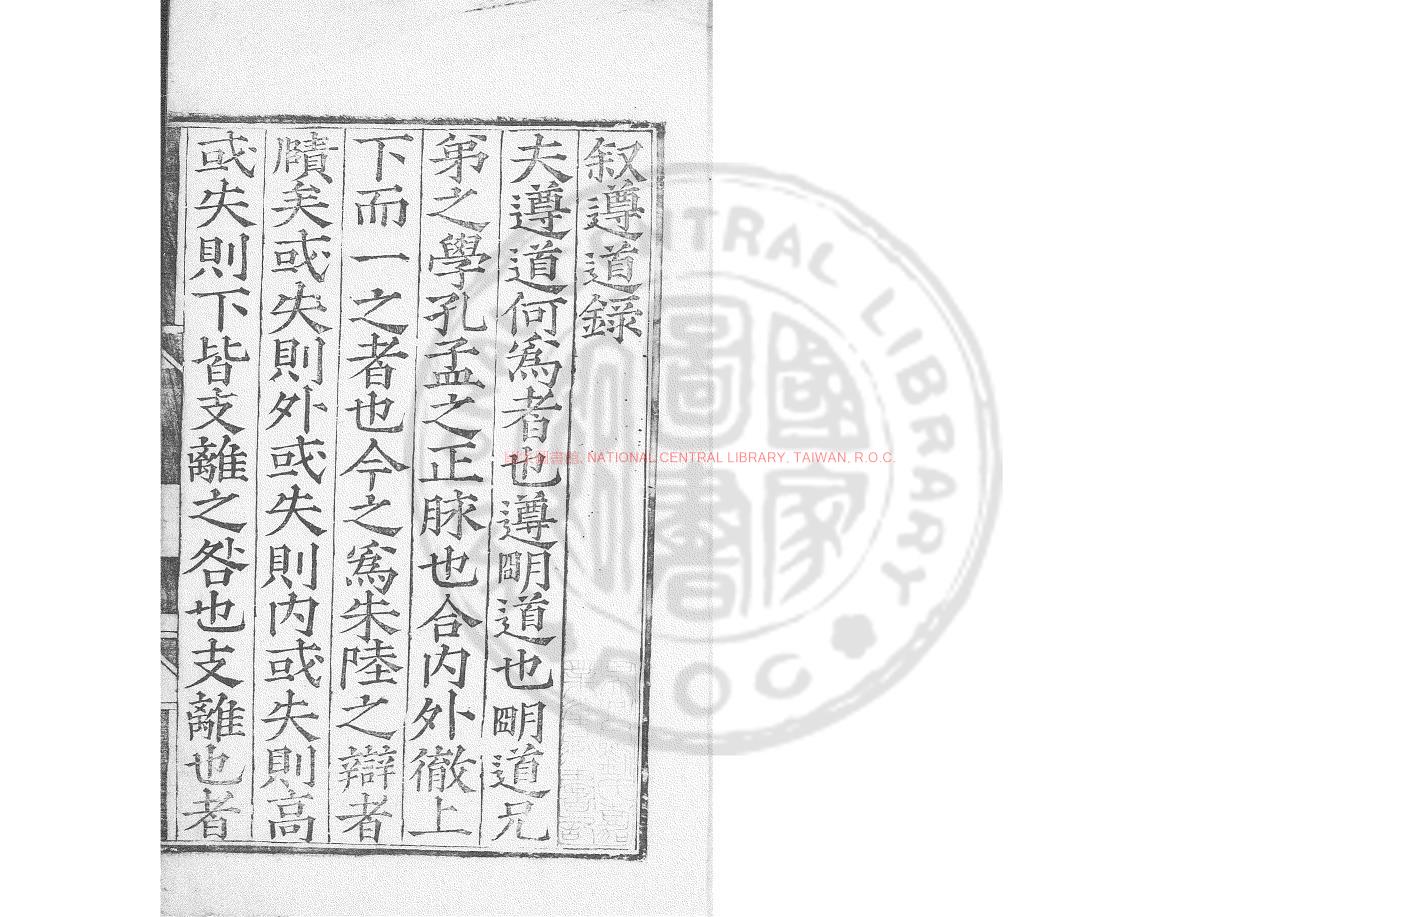 叙遵道録
夫遵道何爲者也遵明道也明道兄
弟之學孔孟之正脉也合内外徹上
下而一之者也今之爲朱陸之辯者
賾矣或失則外或失則内或失則高
或失則下皆支離之咎也支離也者
國家圖書館, NATIONAL CENTRAL LIBRARY, TAIWAN, R.O.C.